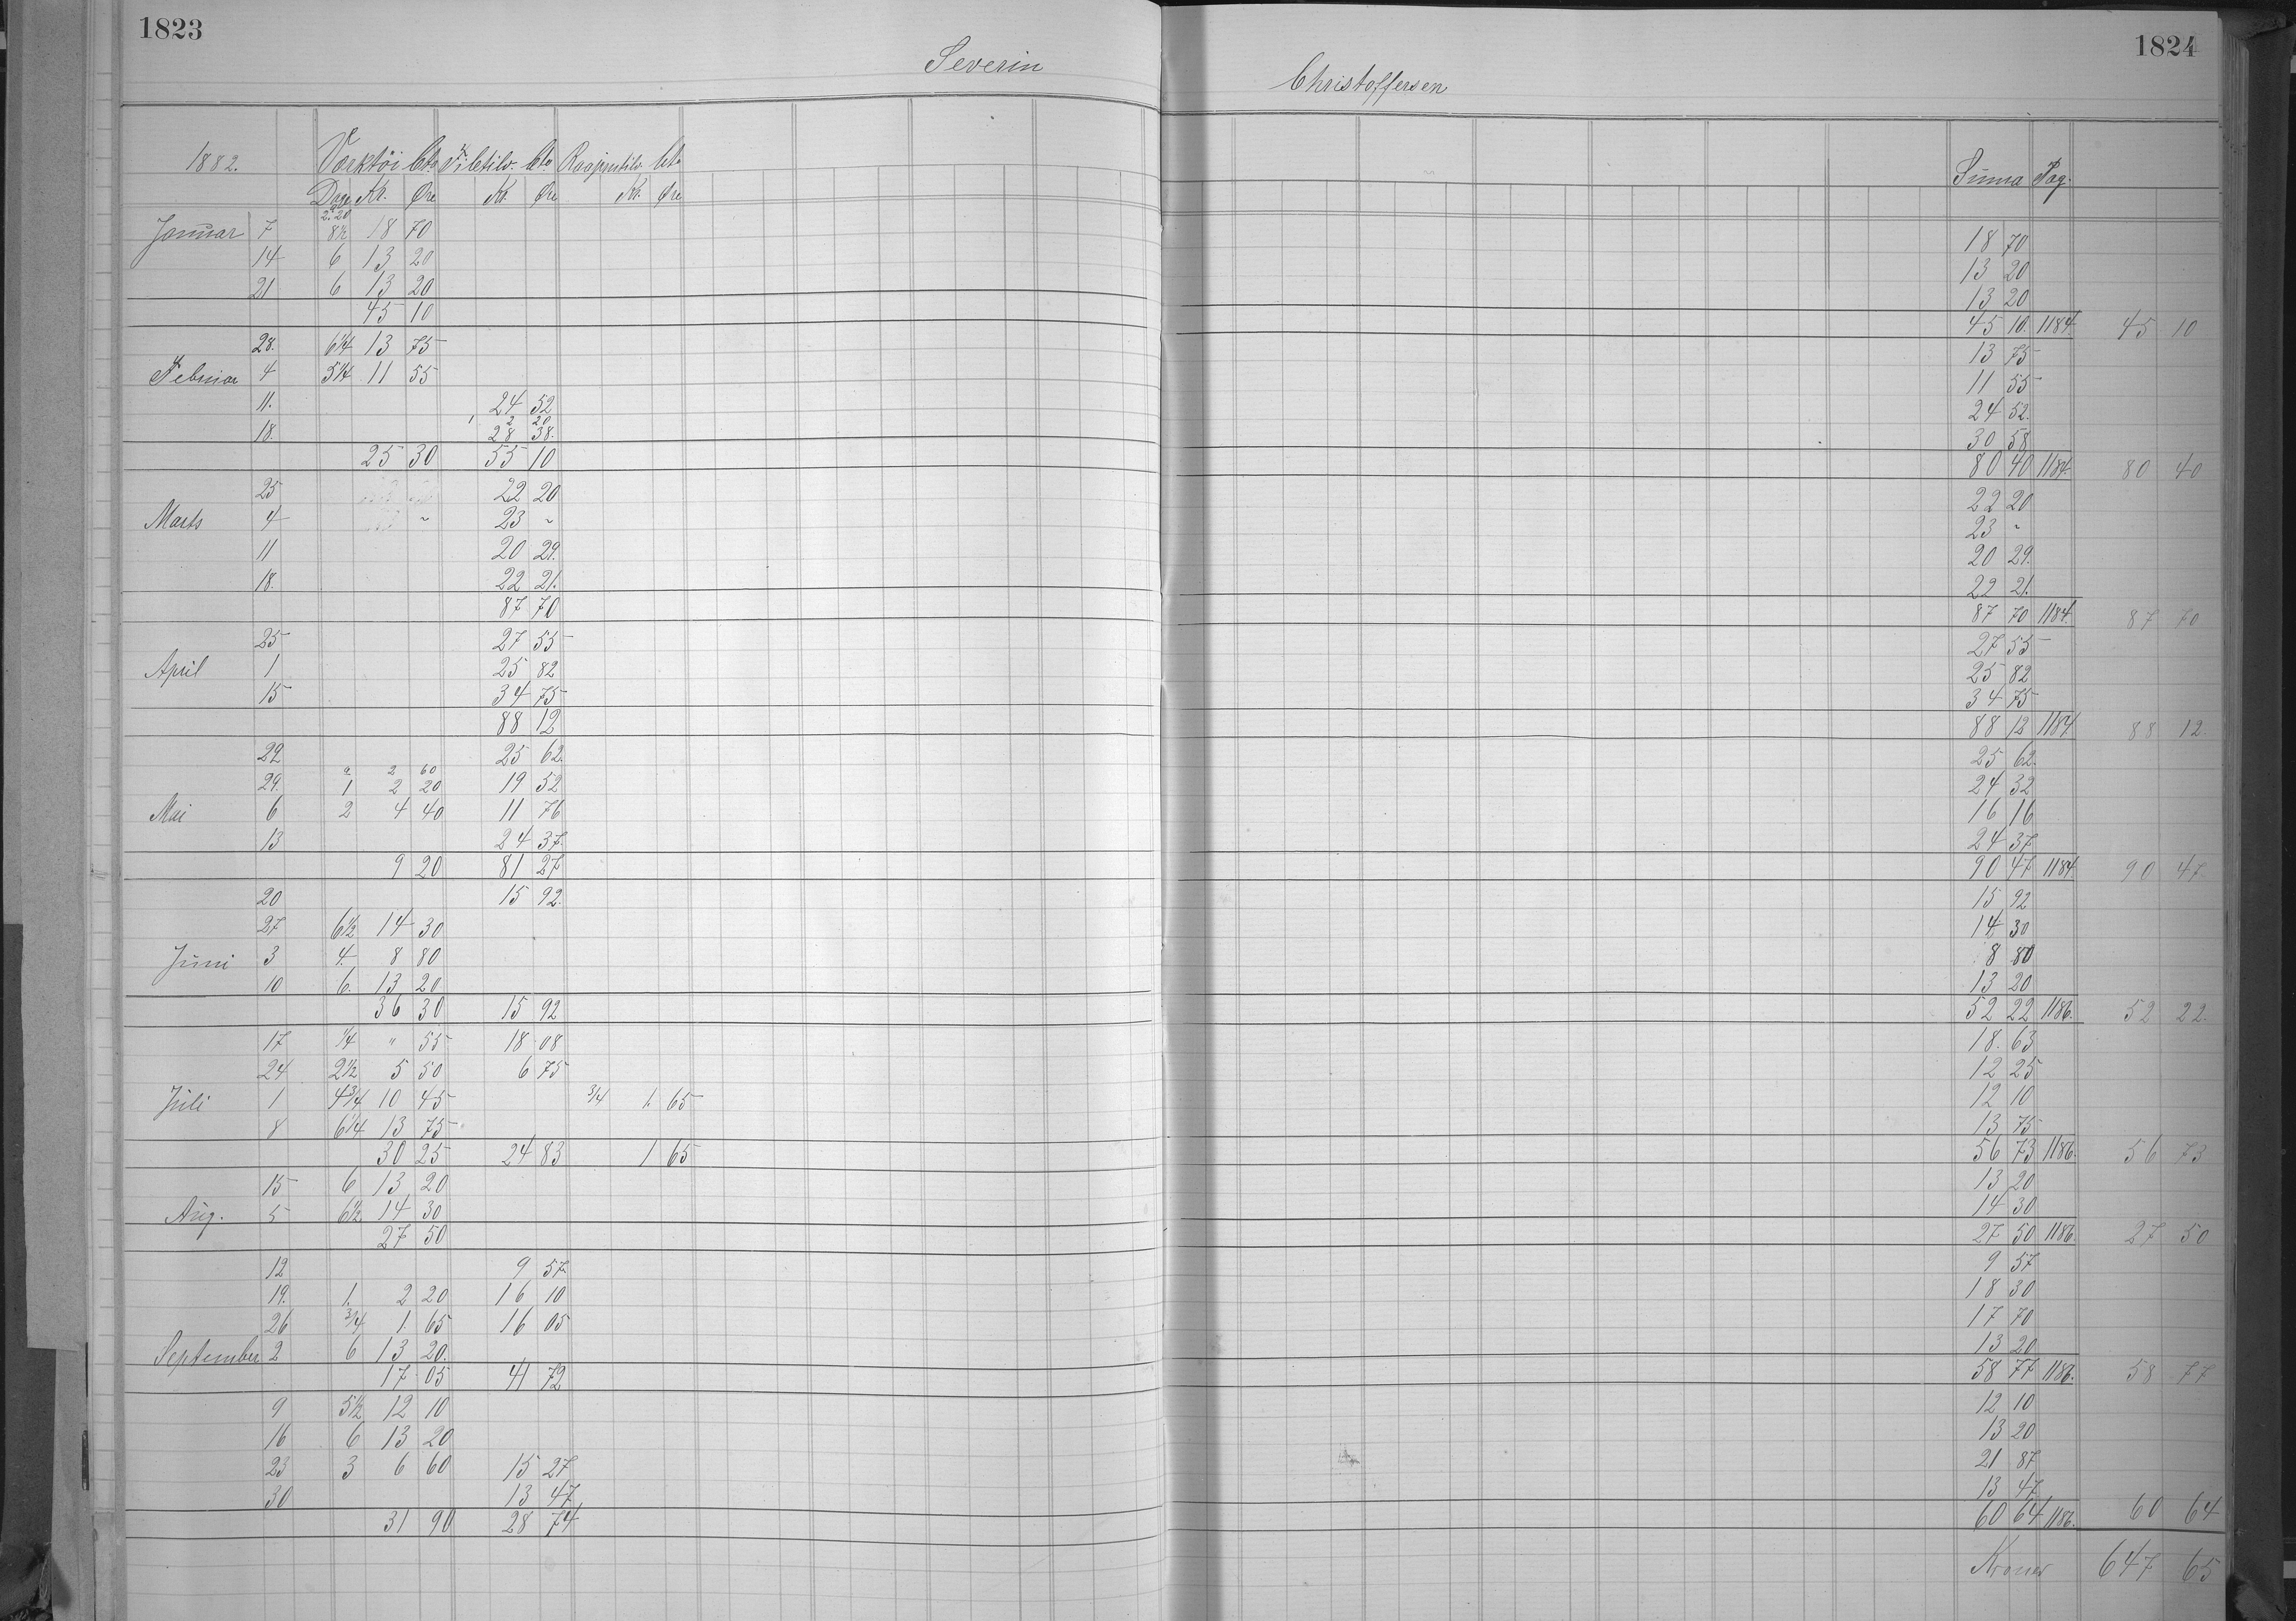 1823 1824
Severin Christoffersen
1882. Værktöi Cto. Cto. Cto Summa Pag.
Dage Kr. Øre Kr. Øre Kr. Øre
2.20
Januar 7 8½ 18 70 18 70
14 6 13 20 13 20
21 6 13 20 13 20
45 10 45 10. 1184. 45 10
28. 6¼ 13 75 13 75
Februar 4 5¼ 11 55 11 55
11. 24 52 24 52.
2 20
18. 28 38. 30 58
25 30 55 10 80 40 1184. 80 40
25 22 20 22 20
Marts 4 23 " 23 "
11 20 29. 20 29.
18. 22 21. 22 21.
87 70 87 70 1184. 87 70
25 27 55 27 55
April 1 25 82 25 82
15 34 75 34 75
88 12 88 12 1184 88 12.
22 25 62. 25 62.
2 60
29. 1 2 20 19 52 24 32
Mai 6 2 4 40 11 76 16 16
13 24 37. 24 37
9 20 81 27 90 47 1184 90 47.
20 15 92. 15 92
27 6½ 14 30 14 30
Juni 3 4. 8 80 8 80
10 6. 13 20 13 20
36 30 15 92 52 22 1186. 52 22.
17 ¼ " 55 18 08 18. 63
24 2½ 5 50 6 75 12 25
Juli 1 4¾ 10 45 ¾ 1. 65 12 10
8 6¼ 13 75 13 75
30 25 24 83 1 65 56 73 1186. 56 73
15 6 13 20 13 20
Aug. 5 6½ 14 30 14 30
27 50 27 50 1186. 27 50
12 9 57. 9 57
19. 1. 2 20 16 10 18 30
26 ¾ 1. 65 16 05 17 70
September 2 6 13 20. 13 20
17 05 41 72 58 77 1186. 58 77
9 5½ 12 10 12 10
16 6 13 20 13 20
23 3 6 60 15 27 21 87
30 13 47 13 47
31 90 28 74 60 64 1186. 60 64
Kroner 647 65